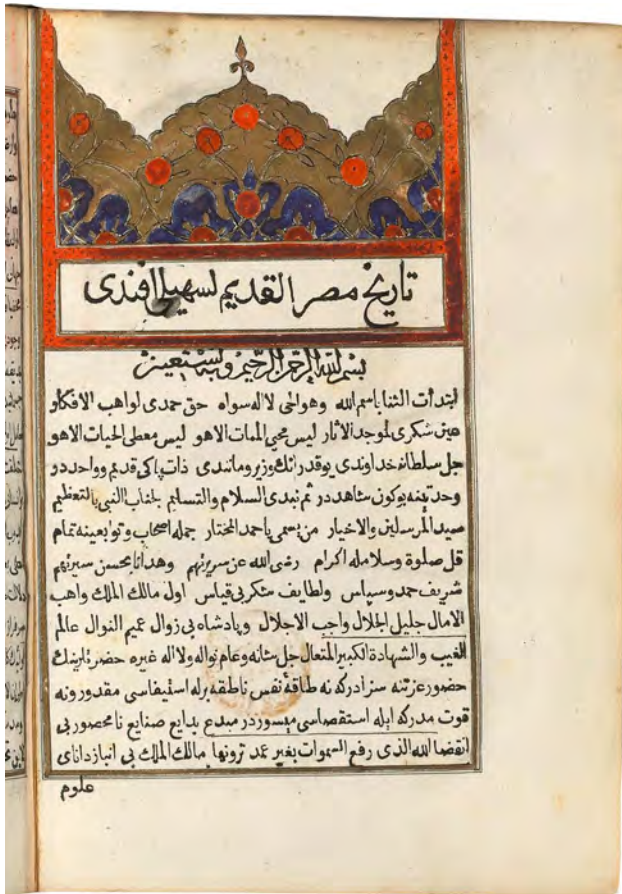 تاريخ مصر القديم لسهيلى افندى
بسم الله الرحمن الرحيم وبه نستعين
ابتدأت الثنا باسم الله وهو الحى لا اله سواه حق حمدى لواهب الافكار
عين شكرى لموجد الاثار ليس محيي الممات الا هو ليس معطى الحيات الا هو
جل سلطانه خداوندى يوقدر انك وزير ومانندى ذات پاكى قديم وواحددر
وحدتينه بو كون شاهددر ثم نبدى السلام والتسليم بجناب النبى بالتعظيم
سيد المرسلين والاخيار من يسمى باحمد المختار جمله اصحاب وتوابعينه تمام
قل صلوة وسلامله اكرام رضى الله عن سريرتهم وهدانا بحسن سيرتهم
شريف حمد وسپاس ولطايف شكر بى قياس اول مالك الملك واهب
الامال جليل الجلال واجب الاجلال وپادشاه بى زوال عميم النوال عالم
الغيب والشهادة الكبير المتعال جل شانه وعام نواله ولا اله غيره حضرتلرينك
حضور عزتنه سزادركه نه طاقة نفس ناطقه برله استيفاسى مقدور ونه
قوت مدركه ايله استقصاسى ميسوردر مبدع بدايع صنايع نامحصور بى
انقضا الله الذى رفع السموات بغير عمد ترونها مالك الملك بى انباز داناى
علوم